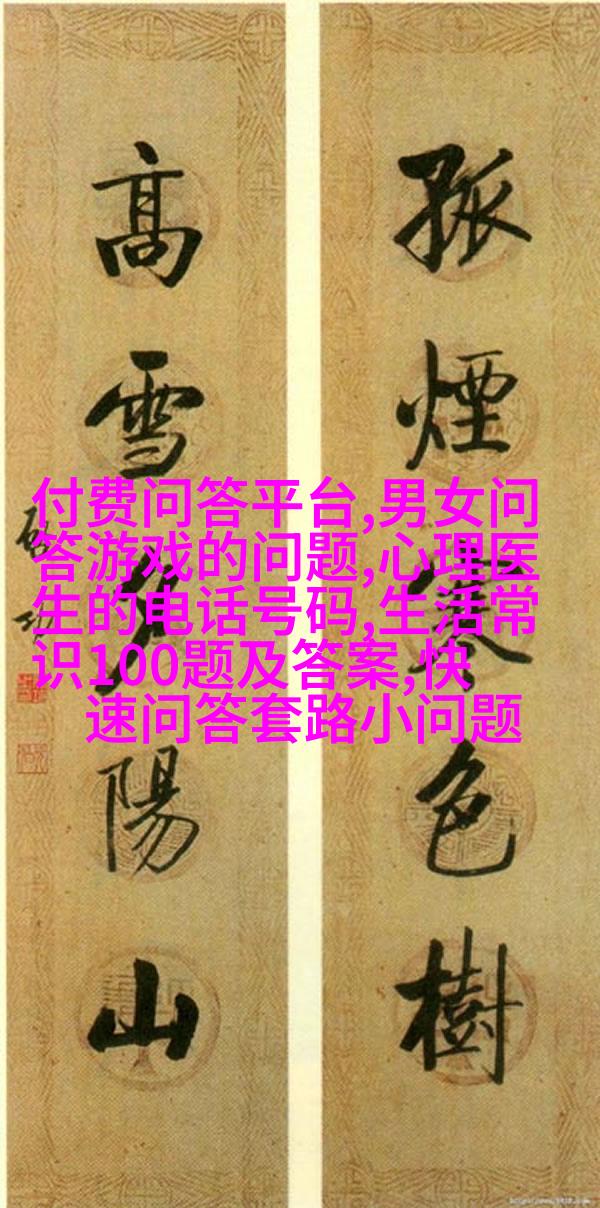 孤煙寒色樹
高雪夕陽山
启功
付费问答平台,男女问
答游戏的问题,心理医
生的电话号码,生活常
识100题及答案,快
速问答套路小问题